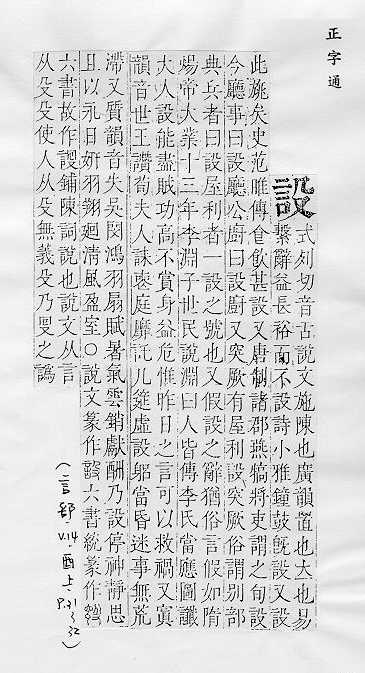 正字通
設
式列切音舌說文施陳也廣韻置也大也易
繫辭益長裕而不設詩小雅鐘鼓旣設又設
此旐矣史范雎傳食飲甚設又唐制諸郡燕犒將吏謂之句設
今廳事曰設廳公廚曰設廚又突厥有屋利設突厥俗謂別部
典兵者曰設屋利者一設之號也又假設之辭猶俗言假如隋
煬帝大業十三年李淵子世民說淵曰人皆傳李氏當應圖讖
大人設能盡賊功高不賞身益危惟昨日之言可以救禍又寘
韻音世王讚荀夫人誄裵庭靡託几筵虛設躬當昏迷事無荒
滯又質韻音失吳閔鴻羽扇賦暑氣雲銷獻酬乃設停神靜思
且以永日姸羽翔廻清風盈室○說文篆作設六書統篆作
六書故作𧨳鋪陳詞說也說文从言
从殳殳使人从殳無義殳乃㕟之譌
(言部 V.14 酉上 P.31~32)